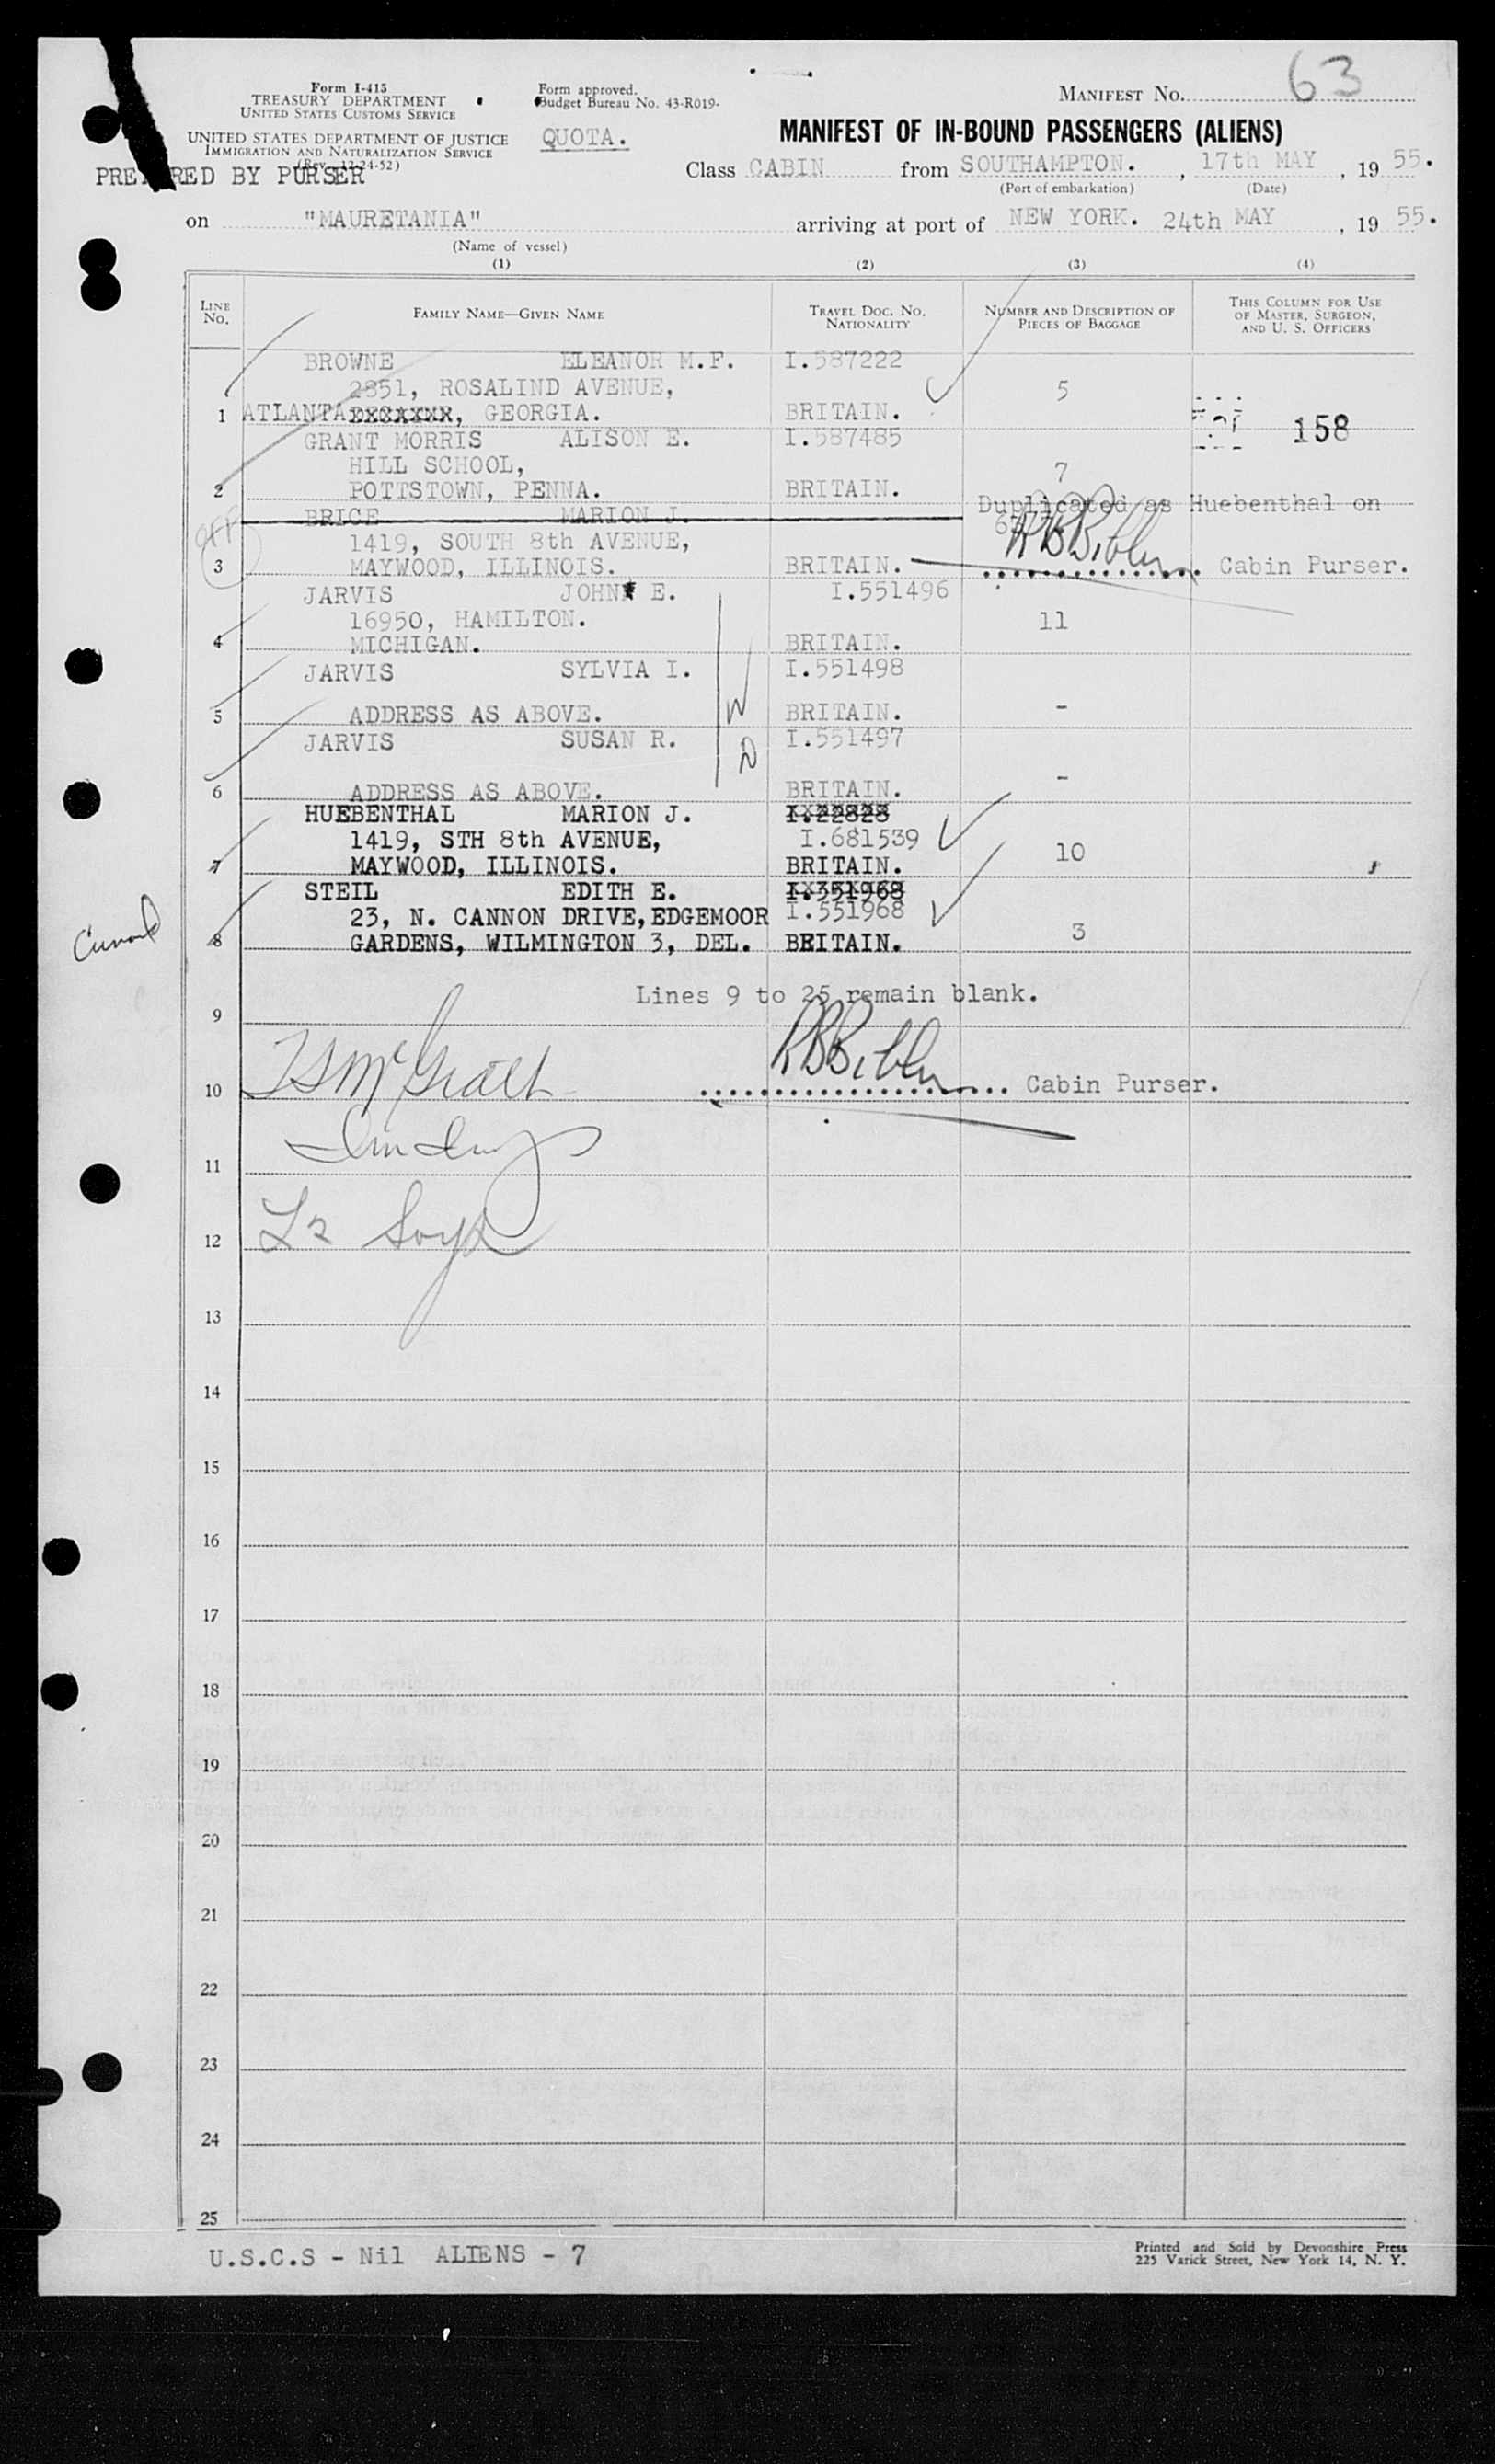 63
Form I-415
TREASURY DEPARTMENT
UNITED STATES CUSTOMS SERVICE
UNITED STATES DEPARTMENT OF JUSTICE
IMMIGRATION AND NATURALIZATION SERVICE
(Rev. 12-24-52)
PREPARED BY PURSER
Form approved.
Budget Bureau No. 43-R019-
QUOTA.
MANIFEST NO.
MANIFEST OF IN-BOUND PASSENGERS (ALIENS)
Class CABIN from SOUTHAMPTON. , 17th MAY , 19 55.
(Port of embarkation) (Date)
on "MAURETANIA" arriving at port of NEW YORK. 24th MAY , 19 55.
(Name of vessel)
(1) (2) (3) (4)
LINE NO. FAMILY NAME—GIVEN NAME TRAVEL DOC. NO. NATIONALITY NUMBER AND DESCRIPTION OF PIECES OF BAGGAGE THIS COLUMN FOR USE OF MASTER, SURGEON, AND U. S. OFFICERS
BROWNE ELEANOR M.F. I.587222
2851, ROSALIND AVENUE, 5
1 ATLANTA, GEORGIA. BRITAIN. 158
GRANT MORRIS ALISON E. I.587485
HILL SCHOOL, 7
2 POTTSTOWN, PENNA. BRITAIN.
Duplicated as Huebenthal on
BRICE MARION J.
1419, SOUTH 8th AVENUE,
3 MAYWOOD, ILLINOIS. BRITAIN. RBBibby Cabin Purser.
JARVIS JOHN E. I.551496
16950, HAMILTON. 11
4 MICHIGAN. BRITAIN.
JARVIS SYLVIA I. I.551498
5 ADDRESS AS ABOVE. BRITAIN. -
JARVIS SUSAN R. I.551497
6 ADDRESS AS ABOVE. BRITAIN. -
HUEBENTHAL MARION J. I.22828
1419, STH 8th AVENUE, I.681539
7 MAYWOOD, ILLINOIS. BRITAIN. 10
STEIL EDITH E. I.351968
23, N. CANNON DRIVE, EDGEMOOR I.551968
8 GARDENS, WILMINGTON 3, DEL. BRITAIN. 3
Cunard
Lines 9 to 25 remain blank.
9
10 McGrath RBBibby Cabin Purser.
11
12
13
14
15
16
17
18
19
20
21
22
23
24
25
U.S.C.S - Nil ALIENS - 7
Printed and Sold by Devonshire Press
225 Varick Street, New York 14, N. Y.